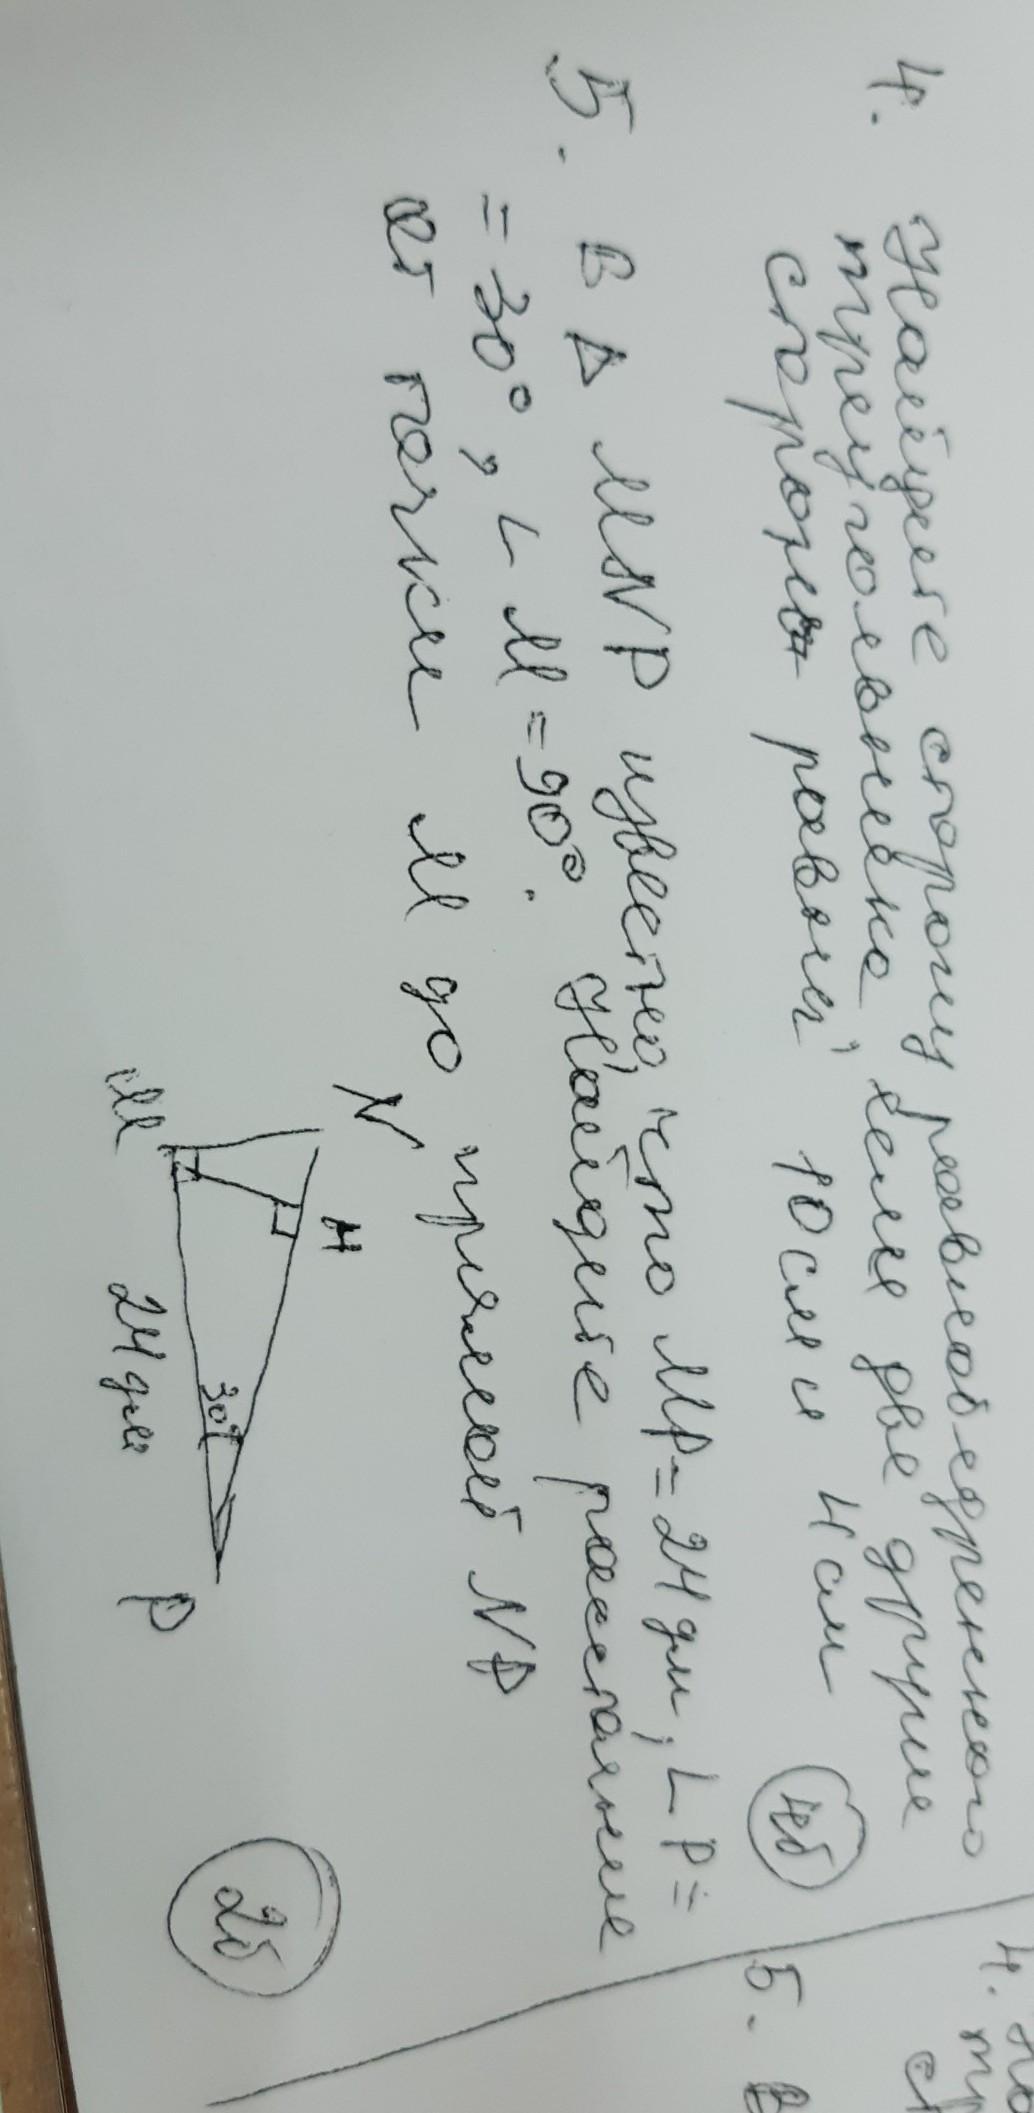 4. Найдите сторону равнобедренного
треугольника, если две другие
стороны равны 10 см и 4 см
4б
5. В Δ MNP известно, что MP = 24 дм, ∠P =
= 30°, ∠M = 90°. Найдите расстояние
от точки M до прямой NP
N
H
M
30°
24 дм
P
2б
4.
5. В